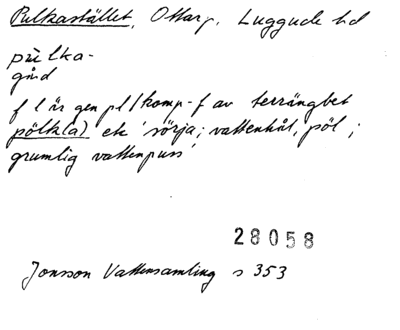 Pulkastället, Ottarp, Luggude hd
pùlka-
gård
f l är gen pl/komp-f av terrängbet
pölk(a) etc 'sörja; vattenhål, pöl;
grumlig vattenpuss'
28058
Jonsson Vattensamling s 353